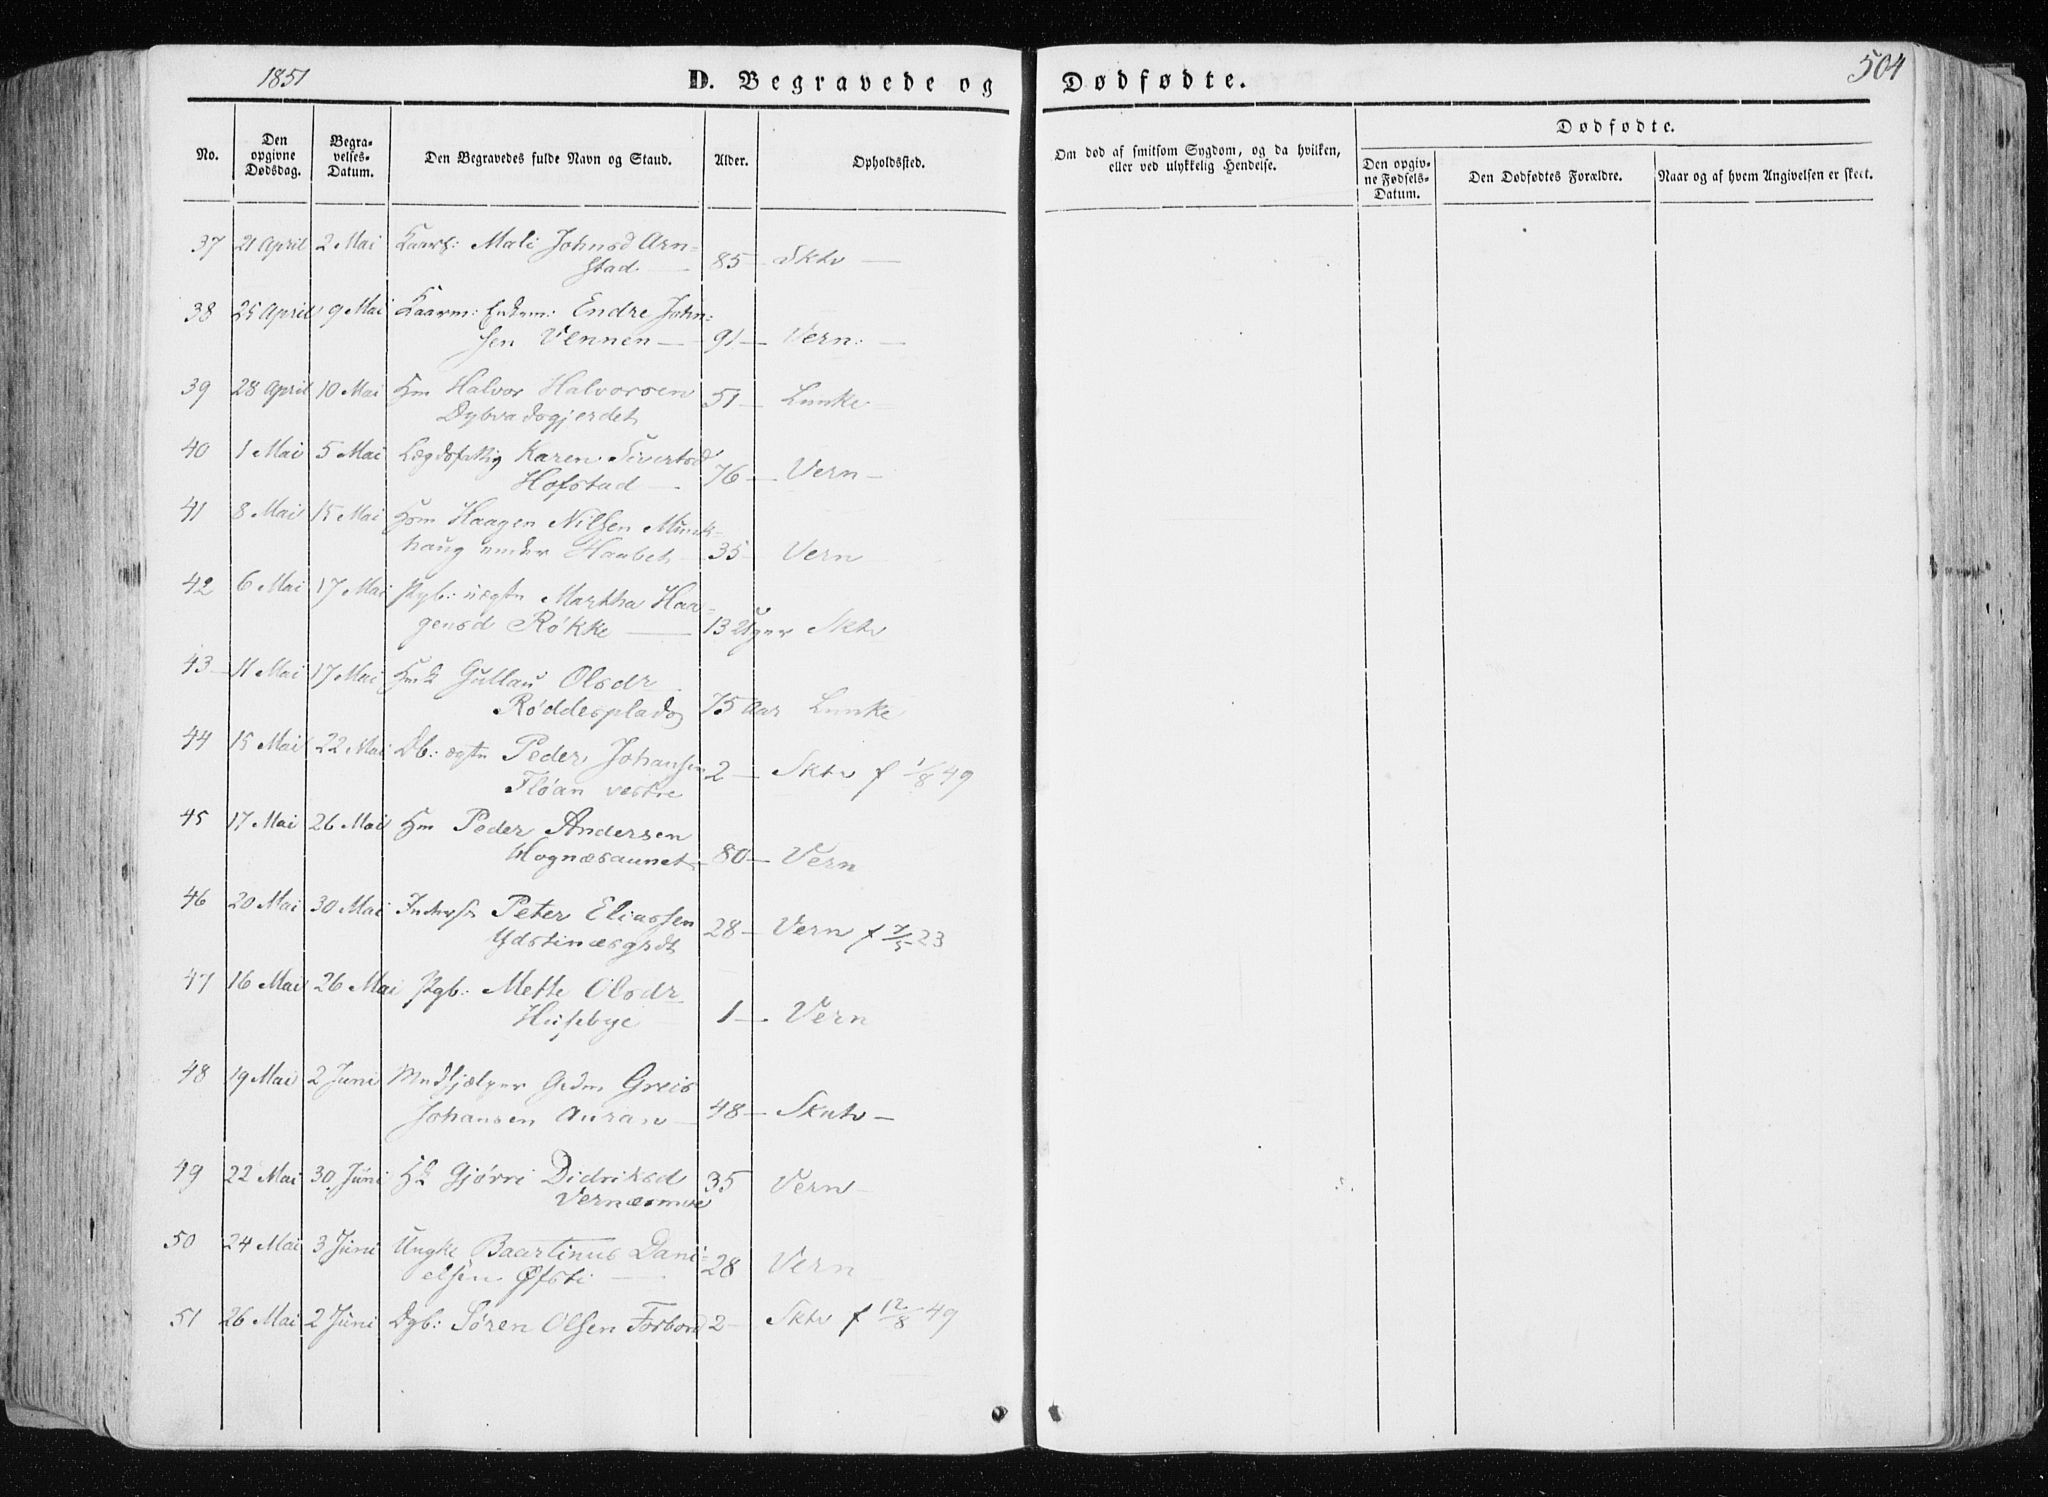 1851
D. Begravede og Dødfødte.
504
No.
Den opgivne Dødsdag.
Begravelses-Datum.
Den Begravedes fulde Navn og Stand.
Alder.
Opholdssted.
Om død af smitsom Sygdom, og da hvilken,
eller ved ulykkelig Hendelse.
Dødfødte.
Den opgivne Fødsels-Datum.
Den Dødfødtes Forældre.
Naar og af hvem Angivelsen er skeet.
37 21 April 2 Mai Mali Johnsd Arn-
stad — 85 — Sktv —
38 25 April 9 Mai Endre John-
sen Vennen — 91 — Vern: —
39 28 April 10 Mai Hm Halvor Halvorsen 51 — Lunke —
Dybvadsgjerdet
40 1 Mai 5 Mai Karen Sivertsd
Hofstad — 76 — Vern —
41 8 Mai 15 Mai Haagen Nilsen Munk-
haug under Haabet 35 — Vern
42 6 Mai 17 Mai Pgb: Martha Haa-
gensd Røkke — 13 Uger Sktv
43 — 11 Mai 17 Mai Gullau Olsdr
Røddesplads 75 Aar Lunke
44 15 Mai 22 Mai Db: ægte Peder Johansen 2 — Sktv f 1/8 49
Fløan vestre
45 17 Mai 26 Mai Hm Peder Andersen
Hognæsaunet 80 — Vern
46 20 Mai 30 Mai Peter Eliassen 28 — Vern f 7/5 23
Ydstinæsgrdt
47 16 Mai 26 Mai Pgb: Mette Olsdr
Husebye 1 — Vern
48 19 Mai 2 Juni Medhjælper Greis
Johansen Auran — 48 — Skatv —
49 22 Mai 30 Juni Gjørri Didriksd 35 Vern —
Vernæsmoe
50 24 Mai 3 Juni Ungk Baartinus Dani-
elsen Øfsti — 28 Vern
51 26 Mai 2 Juni Dgb: Søren Olsen Forbord 2 — Sktv f 12/8 49